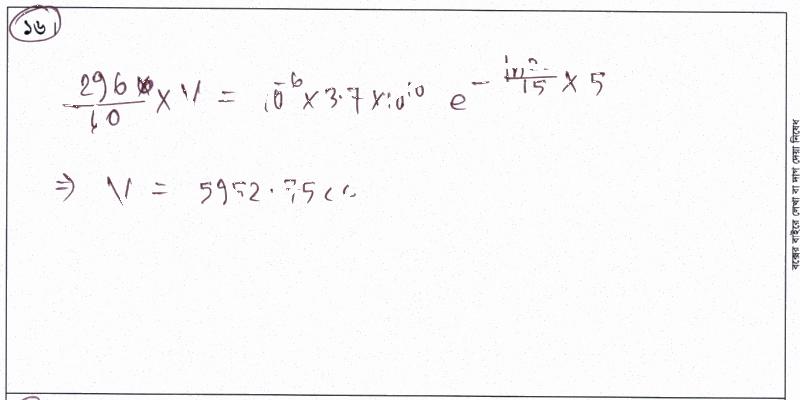 ১৬।
296/10 × V = 10^-6 × 3.7 × 10^10 e^(- ln2/15 × 5)
⇒ V = 5952.75 cc
বক্সের বাইরে লেখা বা দাগ দেয়া নিষেধ